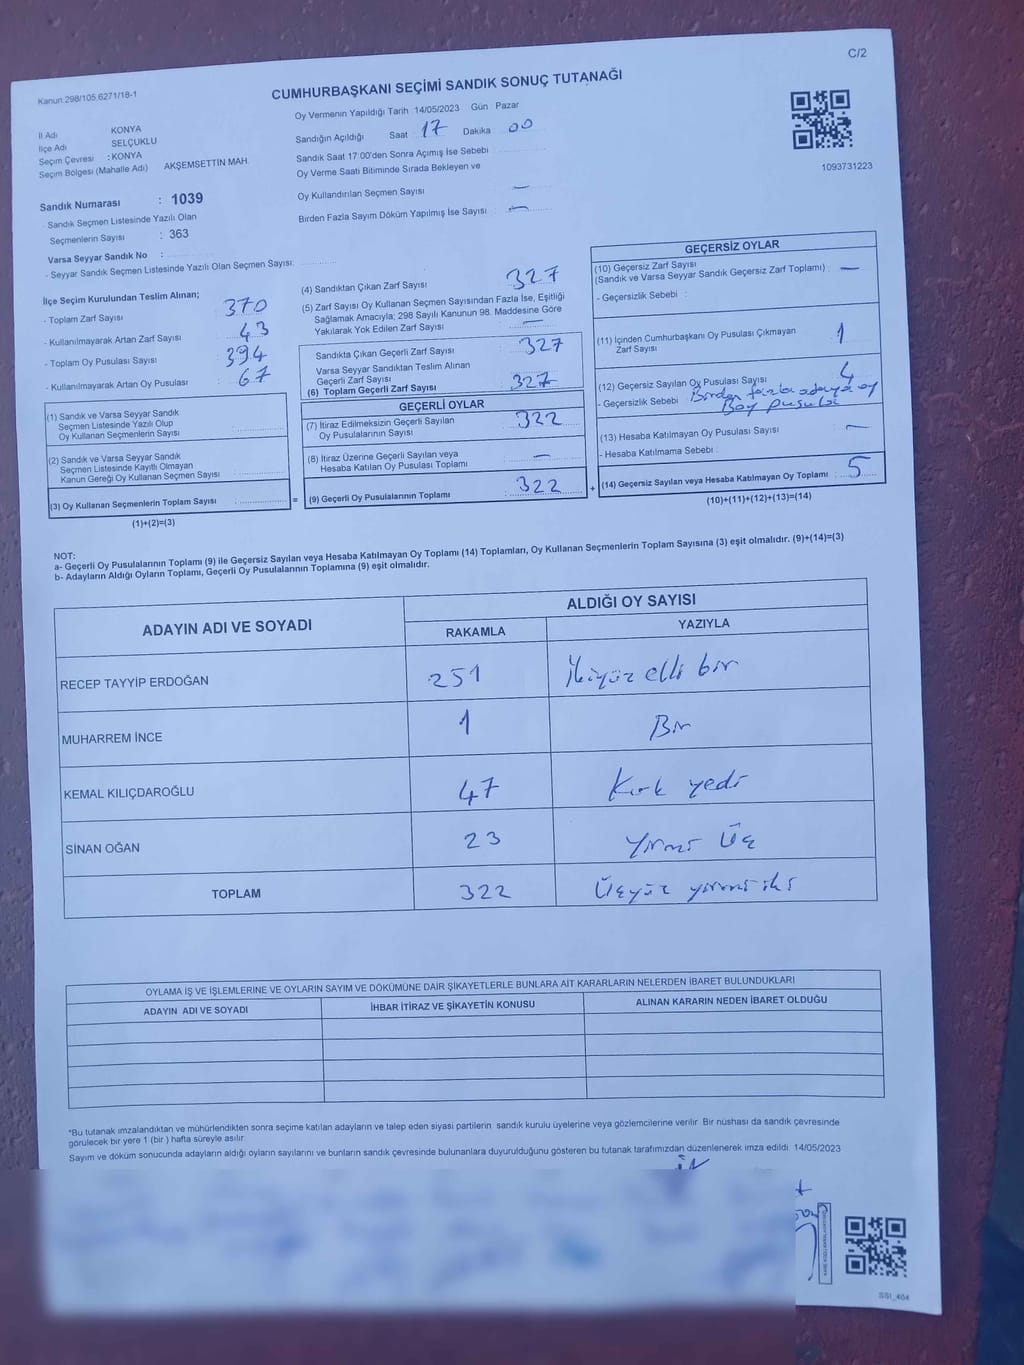 C/2
Kanun.298/105,6271/18-1
CUMHURBAŞKANI SEÇİMİ SANDIK SONUÇ TUTANAĞI
İl Adı KONYA
İlçe Adı SELÇUKLU
Seçim Çevresi : KONYA
Seçim Bölgesi (Mahalle Adı) AKŞEMSETTİN MAH.
Oy Vermenin Yapıldığı Tarih 14/05/2023 Gün Pazar
Sandığın Açıldığı Saat 17 Dakika 00
Sandık Saat 17:00'den Sonra Açımış İse Sebebi
Oy Verme Saati Bitiminde Sırada Bekleyen ve
Oy Kullandırılan Seçmen Sayısı —
Birden Fazla Sayım Döküm Yapılmış İse Sayısı : —
1093731223
Sandık Numarası : 1039
- Sandık Seçmen Listesinde Yazılı Olan
Seçmenlerin Sayısı : 363
Varsa Seyyar Sandık No :
- Seyyar Sandık Seçmen Listesinde Yazılı Olan Seçmen Sayısı:
İlçe Seçim Kurulundan Teslim Alınan;
- Toplam Zarf Sayısı : 370
- Kullanılmayarak Artan Zarf Sayısı : 43
- Toplam Oy Pusulası Sayısı : 394
- Kullanılmayarak Artan Oy Pusulası : 67
(1) Sandık ve Varsa Seyyar Sandık
Seçmen Listesinde Yazılı Olup
Oy Kullanan Seçmenlerin Sayısı :
(2) Sandık ve Varsa Seyyar Sandık
Seçmen Listesinde Kayıtlı Olmayan
Kanun Gereği Oy Kullanan Seçmen Sayısı :
(3) Oy Kullanan Seçmenlerin Toplam Sayısı :
(1)+(2)=(3)
(4) Sandıktan Çıkan Zarf Sayısı : 327
(5) Zarf Sayısı Oy Kullanan Seçmen Sayısından Fazla İse, Eşitliği
Sağlamak Amacıyla; 298 Sayılı Kanunun 98. Maddesine Göre
Yakılarak Yok Edilen Zarf Sayısı : —
Sandıkta Çıkan Geçerli Zarf Sayısı : 327
Varsa Seyyar Sandıktan Teslim Alınan
Geçerli Zarf Sayısı
(6) Toplam Geçerli Zarf Sayısı : 327
GEÇERLİ OYLAR
(7) İtiraz Edilmeksizin Geçerli Sayılan
Oy Pusulalarının Sayısı : 322
(8) İtiraz Üzerine Geçerli Sayılan veya
Hesaba Katılan Oy Pusulası Toplamı : —
= (9) Geçerli Oy Pusulalarının Toplamı : 322 +
GEÇERSİZ OYLAR
(10) Geçersiz Zarf Sayısı
(Sandık ve Varsa Seyyar Sandık Geçersiz Zarf Toplamı) : —
- Geçersizlik Sebebi :
(11) İçinden Cumhurbaşkanı Oy Pusulası Çıkmayan
Zarf Sayısı : 1
(12) Geçersiz Sayılan Oy Pusulası Sayısı : 4
- Geçersizlik Sebebi Birden fazla adaya oy
Boş pusula
(13) Hesaba Katılmayan Oy Pusulası Sayısı : —
- Hesaba Katılmama Sebebi :
(14) Geçersiz Sayılan veya Hesaba Katılmayan Oy Toplamı : 5
(10)+(11)+(12)+(13)=(14)
NOT:
a- Geçerli Oy Pusulalarının Toplamı (9) ile Geçersiz Sayılan veya Hesaba Katılmayan Oy Toplamı (14) Toplamları, Oy Kullanan Seçmenlerin Toplam Sayısına (3) eşit olmalıdır. (9)+(14)=(3)
b- Adayların Aldığı Oyların Toplamı, Geçerli Oy Pusulalarının Toplamına (9) eşit olmalıdır.
ADAYIN ADI VE SOYADI
ALDIĞI OY SAYISI
RAKAMLA YAZIYLA
RECEP TAYYİP ERDOĞAN 251 İkiyüz elli bir
MUHARREM İNCE 1 Bir
KEMAL KILIÇDAROĞLU 47 Kırk yedi
SİNAN OĞAN 23 Yirmi Üç
TOPLAM 322 Üçyüz yirmi iki
OYLAMA İŞ VE İŞLEMLERİNE VE OYLARIN SAYIM VE DÖKÜMÜNE DAİR ŞİKAYETLERLE BUNLARA AİT KARARLARIN NELERDEN İBARET BULUNDUKLARI
ADAYIN ADI VE SOYADI İHBAR İTİRAZ VE ŞİKAYETİN KONUSU ALINAN KARARIN NEDEN İBARET OLDUĞU
*Bu tutanak imzalandıktan ve mühürlendikten sonra seçime katılan adayların ve talep eden siyasi partilerin sandık kurulu üyelerine veya gözlemcilerine verilir. Bir nüshası da sandık çevresinde
görülecek bir yere 1 (bir) hafta süreyle asılır.
Sayım ve döküm sonucunda adayların aldığı oyların sayılarını ve bunların sandık çevresinde bulunanlara duyurulduğunu gösteren bu tutanak tarafımızdan düzenlenerek imza edildi. 14/05/2023